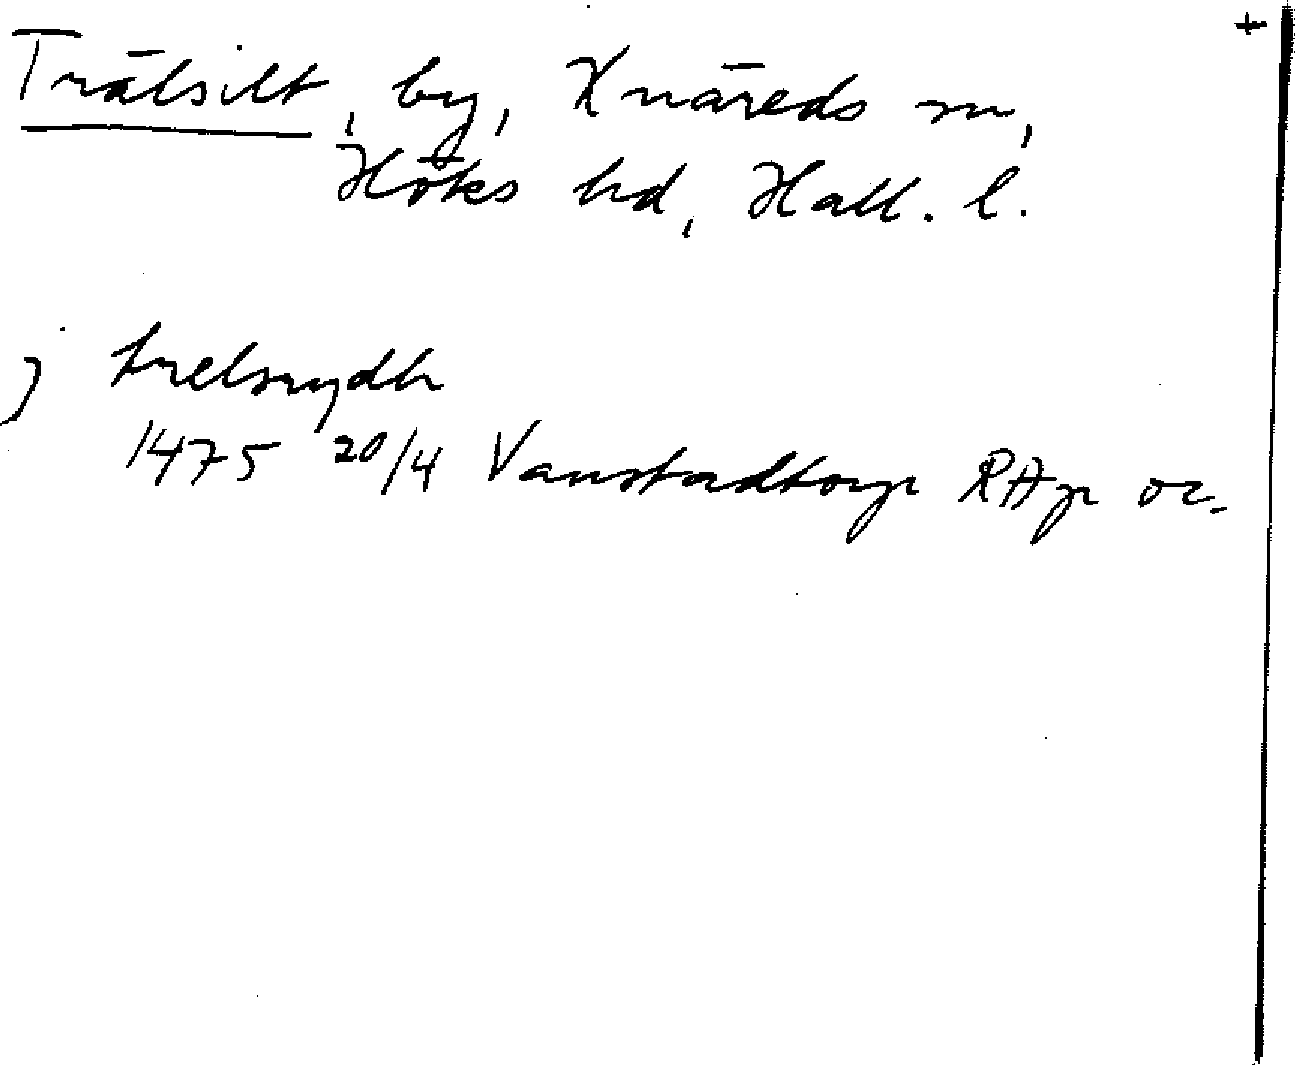 +
Trälsilt, by, Knäreds sn,
Höks hd, Hall. l.
j trelsrydh
1475 20/4 Vanstadtorp RAp or.